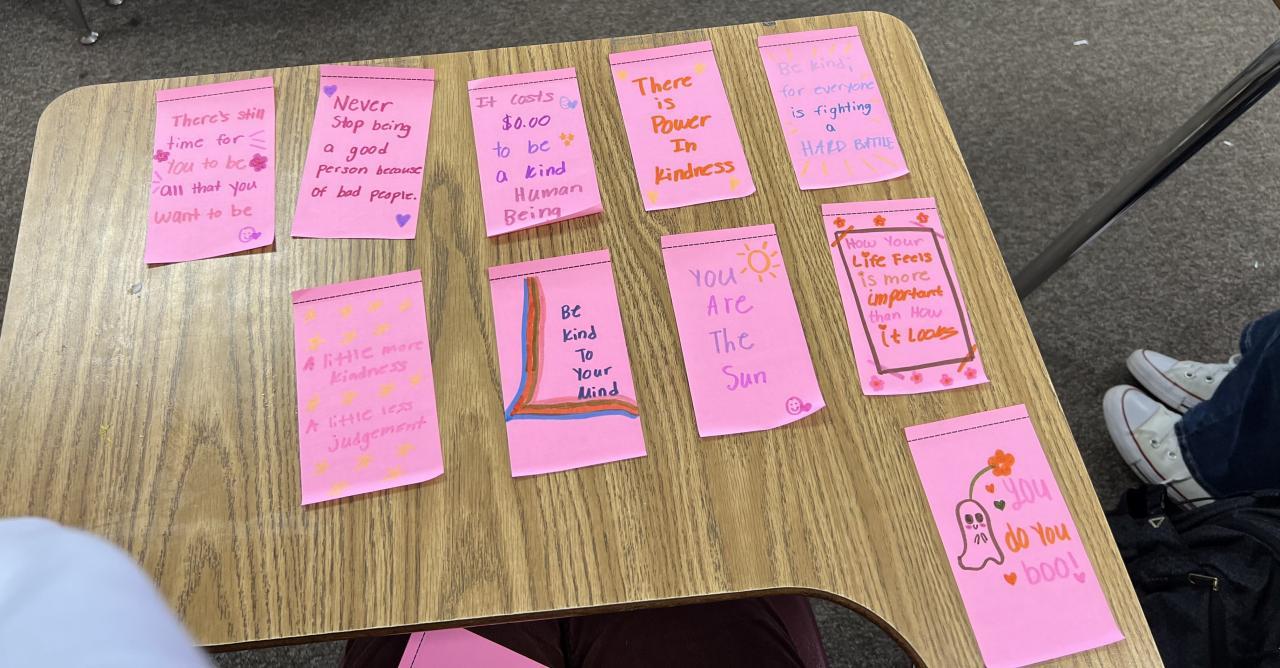 There's still
time for
You to be
all that you
want to be
Never
Stop being
a good
person because
of bad people.
It costs
$0.00
to be
a kind
Human
Being
There
is
Power
In
kindness
Be kind;
for everyone
is fighting
a
HARD BATTLE
A little more
kindness
A little less
judgement
Be
Kind
To
Your
Mind
You
Are
The
Sun
How Your
Life Feels
is more
important
than How
it Looks
you
do you
boo!